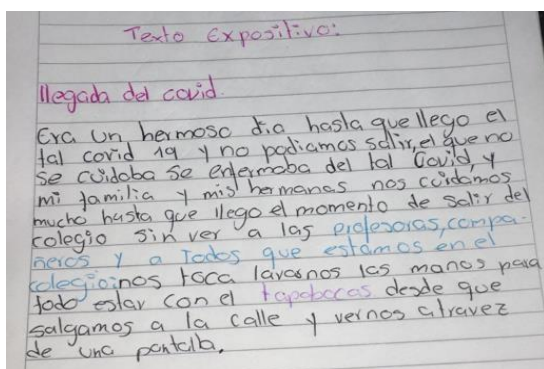 Texto Expositivo:
llegada del covid.
Era un hermoso dia hasta que llego el
tal covid 19 y no podiamos salir, el que no
se cuidaba se enfermaba del tal Covid, y
mi familia y mis hermanas nos cuidamos
mucho hasta que llego el momento de salir del
colegio sin ver a las profesoras, compa-
ñeros y a Todos que estamos en el
colegio nos toca lavarnos las manos para
todo estar con el tapabocas desde que
salgamos a la calle y vernos atravez
de una pantalla.